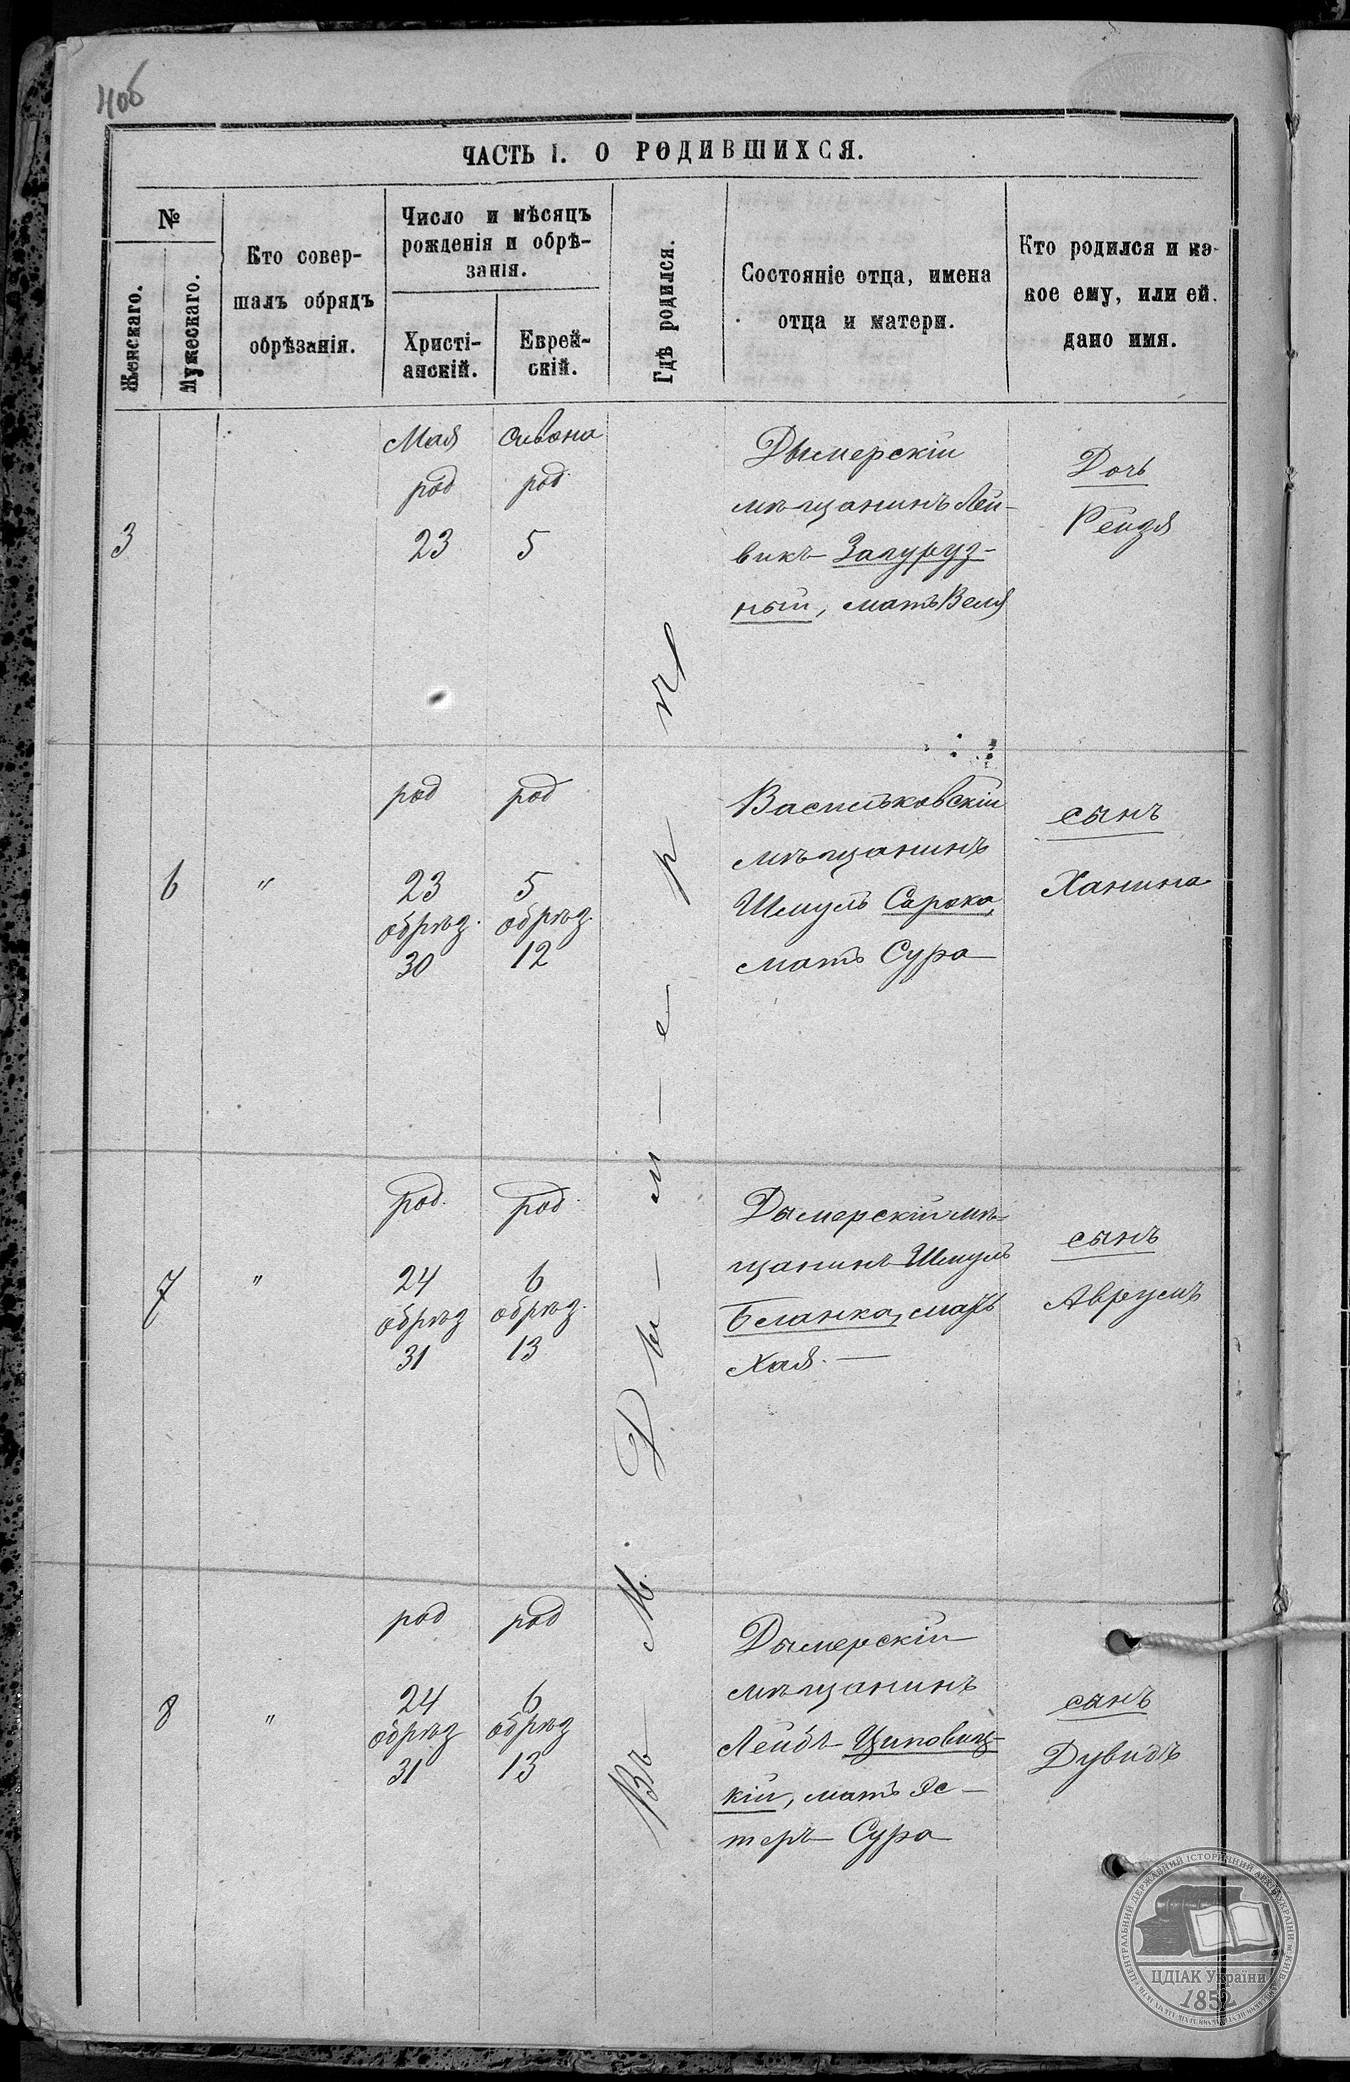 4об
ЧАСТЬ I. О РОДИВШИХСЯ.
№
Женскаго.
Мужескаго.
Кто совер-
шалъ обрядъ
обрѣзанія.
Число и мѣсяцъ
рожденія и обрѣ-
занія.
Христі-
анскій.
Еврей-
скій.
Гдѣ родился.
Состояніе отца, имена
отца и матери.
Кто родился и ка-
кое ему, или ей
дано имя.
3
Мая
род
23
Сивона
род
5
Дымерскій
мѣщанинъ Лей-
викъ Запуруз-
ный, мать Веля
Дочь
Рейзя
Въ М. Дымерѣ
6
"
род
23
обрѣз.
30
род
5
обрѣз.
12
Васильковскій
мѣщанинъ
Шмуль Сарока,
мать Сура
сынъ
Ханина
7
"
род.
24
обрѣз
31
род.
6
обрѣз.
13
Дымерскій мѣ-
щанинъ Шмуль
Бланка, мать
Хая.
сынъ
Аврумъ
8
"
род
24
обрѣз
31
род
6
обрѣз
13
Дымерскій
мѣщанинъ
Лейбъ Циповец-
кій, мать Эс-
теръ Сура
сынъ
Дувидъ
ЦЕНТРАЛЬНИЙ ДЕРЖАВНИЙ ІСТОРИЧНИЙ АРХІВ УКРАЇНИ м. КИЇВ
ЦДІАК України
1852